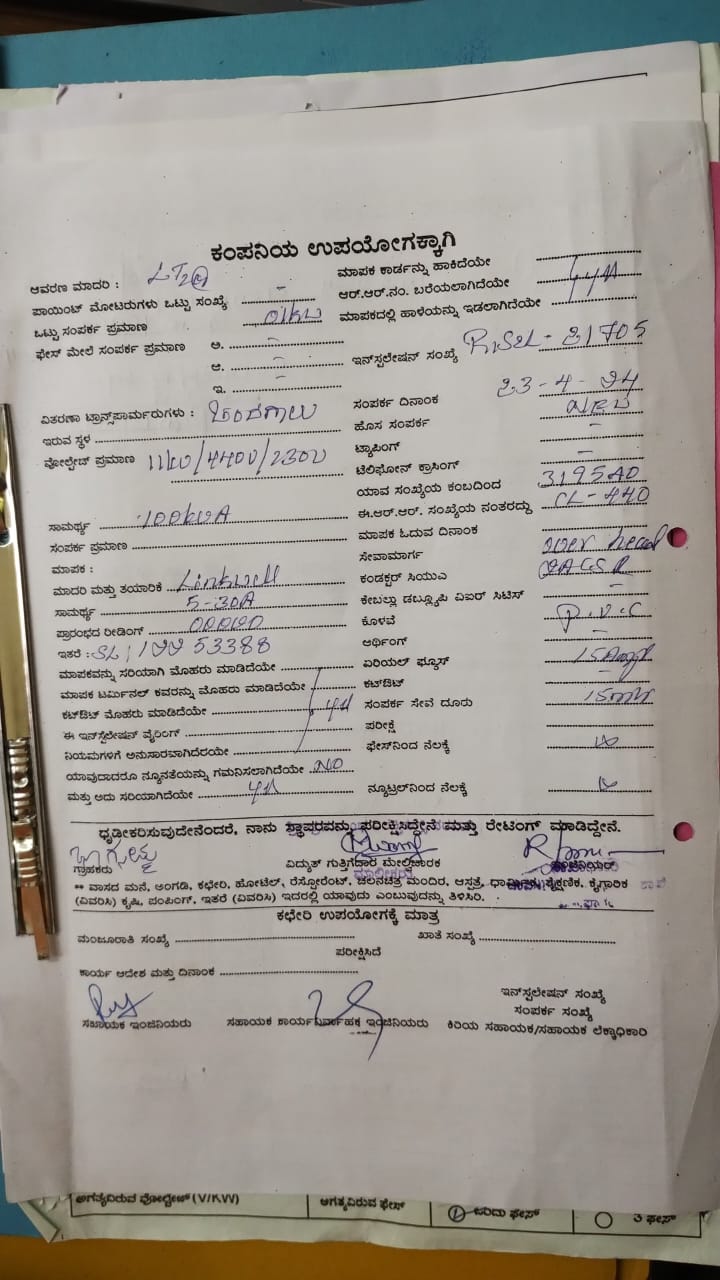 ಕಂಪನಿಯ ಉಪಯೋಗಕ್ಕಾಗಿ
ಆವರಣ ಮಾದರಿ : LT2 ಮಾಪಕ ಕಾರ್ಡನ್ನು ಹಾಕಿದೆಯೇ
ಪಾಯಿಂಟ್ ಮೋಟರುಗಳು ಒಟ್ಟು ಸಂಖ್ಯೆ - ಆರ್.ಆರ್.ನಂ. ಬರೆಯಲಾಗಿದೆಯೇ
ಒಟ್ಟು ಸಂಪರ್ಕ ಪ್ರಮಾಣ 01KW ಮಾಪಕದಲ್ಲಿ ಹಾಳೆಯನ್ನು ಇಡಲಾಗಿದೆಯೇ
ಫೇಸ್ ಮೇಲೆ ಸಂಪರ್ಕ ಪ್ರಮಾಣ ಅ. -
ಆ. - ಇನ್‌ಸ್ಟಲೇಷನ್ ಸಂಖ್ಯೆ 31705
ಇ. -
ವಿತರಣಾ ಟ್ರಾನ್ಸ್‌ಪಾರ್ಮರುಗಳು : ಸಂಪರ್ಕ ದಿನಾಂಕ 23-4-24
ಇರುವ ಸ್ಥಳ ಹೊಸ ಸಂಪರ್ಕ NEW
ವೋಲ್ಟೇಜ್ ಪ್ರಮಾಣ 11KV/440V/230V ಟ್ಯಾಪಿಂಗ್ -
ಟೆಲಿಫೋನ್ ಕ್ರಾಸಿಂಗ್ -
ಯಾವ ಸಂಖ್ಯೆಯ ಕಂಬದಿಂದ 3195AD
ಸಾಮರ್ಥ್ಯ 100KVA ಈ.ಆರ್.ಆರ್. ಸಂಖ್ಯೆಯ ನಂತರದ್ದು CL-440
ಸಂಪರ್ಕ ಪ್ರಮಾಣ ಮಾಪಕ ಓದುವ ದಿನಾಂಕ
ಮಾಪಕ : ಸೇವಾಮಾರ್ಗ over head
ಮಾದರಿ ಮತ್ತು ತಯಾರಿಕೆ Linkwell ಕಂಡಕ್ಟರ್ ಸಿಯುಎ
ಸಾಮರ್ಥ್ಯ 5-30A ಕೇಬಲ್ಲು ಡಬ್ಲ್ಯೂಪಿ ವಿಐರ್ ಸಿಟಿಸ್ -
ಪ್ರಾರಂಭದ ರೀಡಿಂಗ್ ಕೊಳವೆ P.V.C
ಇತರೆ : 53388 ಅರ್ಥಿಂಗ್ -
ಮಾಪಕವನ್ನು ಸರಿಯಾಗಿ ಮೊಹರು ಮಾಡಿದೆಯೇ ಏರಿಯಲ್ ಫ್ಯೂಸ್ 15Amp
ಮಾಪಕ ಟರ್ಮಿನಲ್ ಕವರನ್ನು ಮೊಹರು ಮಾಡಿದೆಯೇ ಕಟ್‌ಔಟ್ -
ಕಟ್‌ಔಟ್ ಮೊಹರು ಮಾಡಿದೆಯೇ ಸಂಪರ್ಕ ಸೇವೆ ದೂರು 15mtr
ಈ ಇನ್‌ಸ್ಟಲೇಷನ್ ವೈರಿಂಗ್ ಪರೀಕ್ಷೆ
ನಿಯಮಗಳಿಗೆ ಅನುಸಾರವಾಗಿದೆರೆಯೇ ಫೇಸ್‌ನಿಂದ ನೆಲಕ್ಕೆ
ಯಾವುದಾದರೂ ನ್ಯೂನತೆಯನ್ನು ಗಮನಿಸಲಾಗಿದೆಯೇ NO
ಮತ್ತು ಅದು ಸರಿಯಾಗಿದೆಯೇ ನ್ಯೂಟ್ರಲ್‌ನಿಂದ ನೆಲಕ್ಕೆ
ಧೃಡೀಕರಿಸುವುದೇನೆಂದರೆ, ನಾನು ಸ್ಥಾಪರವನ್ನು ಪರೀಕ್ಷಿಸಿದ್ದೇನೆ ಮತ್ತು ರೇಟಿಂಗ್ ಮಾಡಿದ್ದೇನೆ.
ಗ್ರಾಹಕರು ವಿದ್ಯುತ್ ಗುತ್ತಿಗೆದಾರ ಮೇಲ್ವಿಚಾರಕ ಇಂಜಿನಿಯರ್
** ವಾಸದ ಮನೆ, ಅಂಗಡಿ, ಕಛೇರಿ, ಹೋಟೆಲ್, ರೆಸ್ಟೋರೆಂಟ್, ಚಲನಚಿತ್ರ ಮಂದಿರ, ಆಸ್ಪತ್ರೆ, ಧಾರ್ಮಿಕ, ಶೈಕ್ಷಣಿಕ, ಕೈಗಾರಿಕ
(ವಿವರಿಸಿ) ಕೃಷಿ, ಪಂಪಿಂಗ್, ಇತರೆ (ವಿವರಿಸಿ) ಇದರಲ್ಲಿ ಯಾವುದು ಎಂಬುವುದನ್ನು ತಿಳಿಸಿರಿ.
ಕಛೇರಿ ಉಪಯೋಗಕ್ಕೆ ಮಾತ್ರ
ಮಂಜೂರಾತಿ ಸಂಖ್ಯೆ ಖಾತೆ ಸಂಖ್ಯೆ
ಪರೀಕ್ಷಿಸಿದೆ
ಕಾರ್ಯ ಆದೇಶ ಮತ್ತು ದಿನಾಂಕ
ಇನ್‌ಸ್ಟಲೇಷನ್ ಸಂಖ್ಯೆ
ಸಂಪರ್ಕ ಸಂಖ್ಯೆ
ಸಹಾಯಕ ಇಂಜಿನಿಯರು ಸಹಾಯಕ ಕಾರ್ಯನಿರ್ವಾಹಕ ಇಂಜಿನಿಯರು ಕಿರಿಯ ಸಹಾಯಕ/ಸಹಾಯಕ ಲೆಕ್ಕಾಧಿಕಾರಿ
ಅಗತ್ಯವಿರುವ ವೋಲ್ಟೇಜ್ (V/KW) ಅಗತ್ಯವಿರುವ ಫೇಸ್ ಒಂದು ಫೇಸ್ 3 ಫೇಸ್